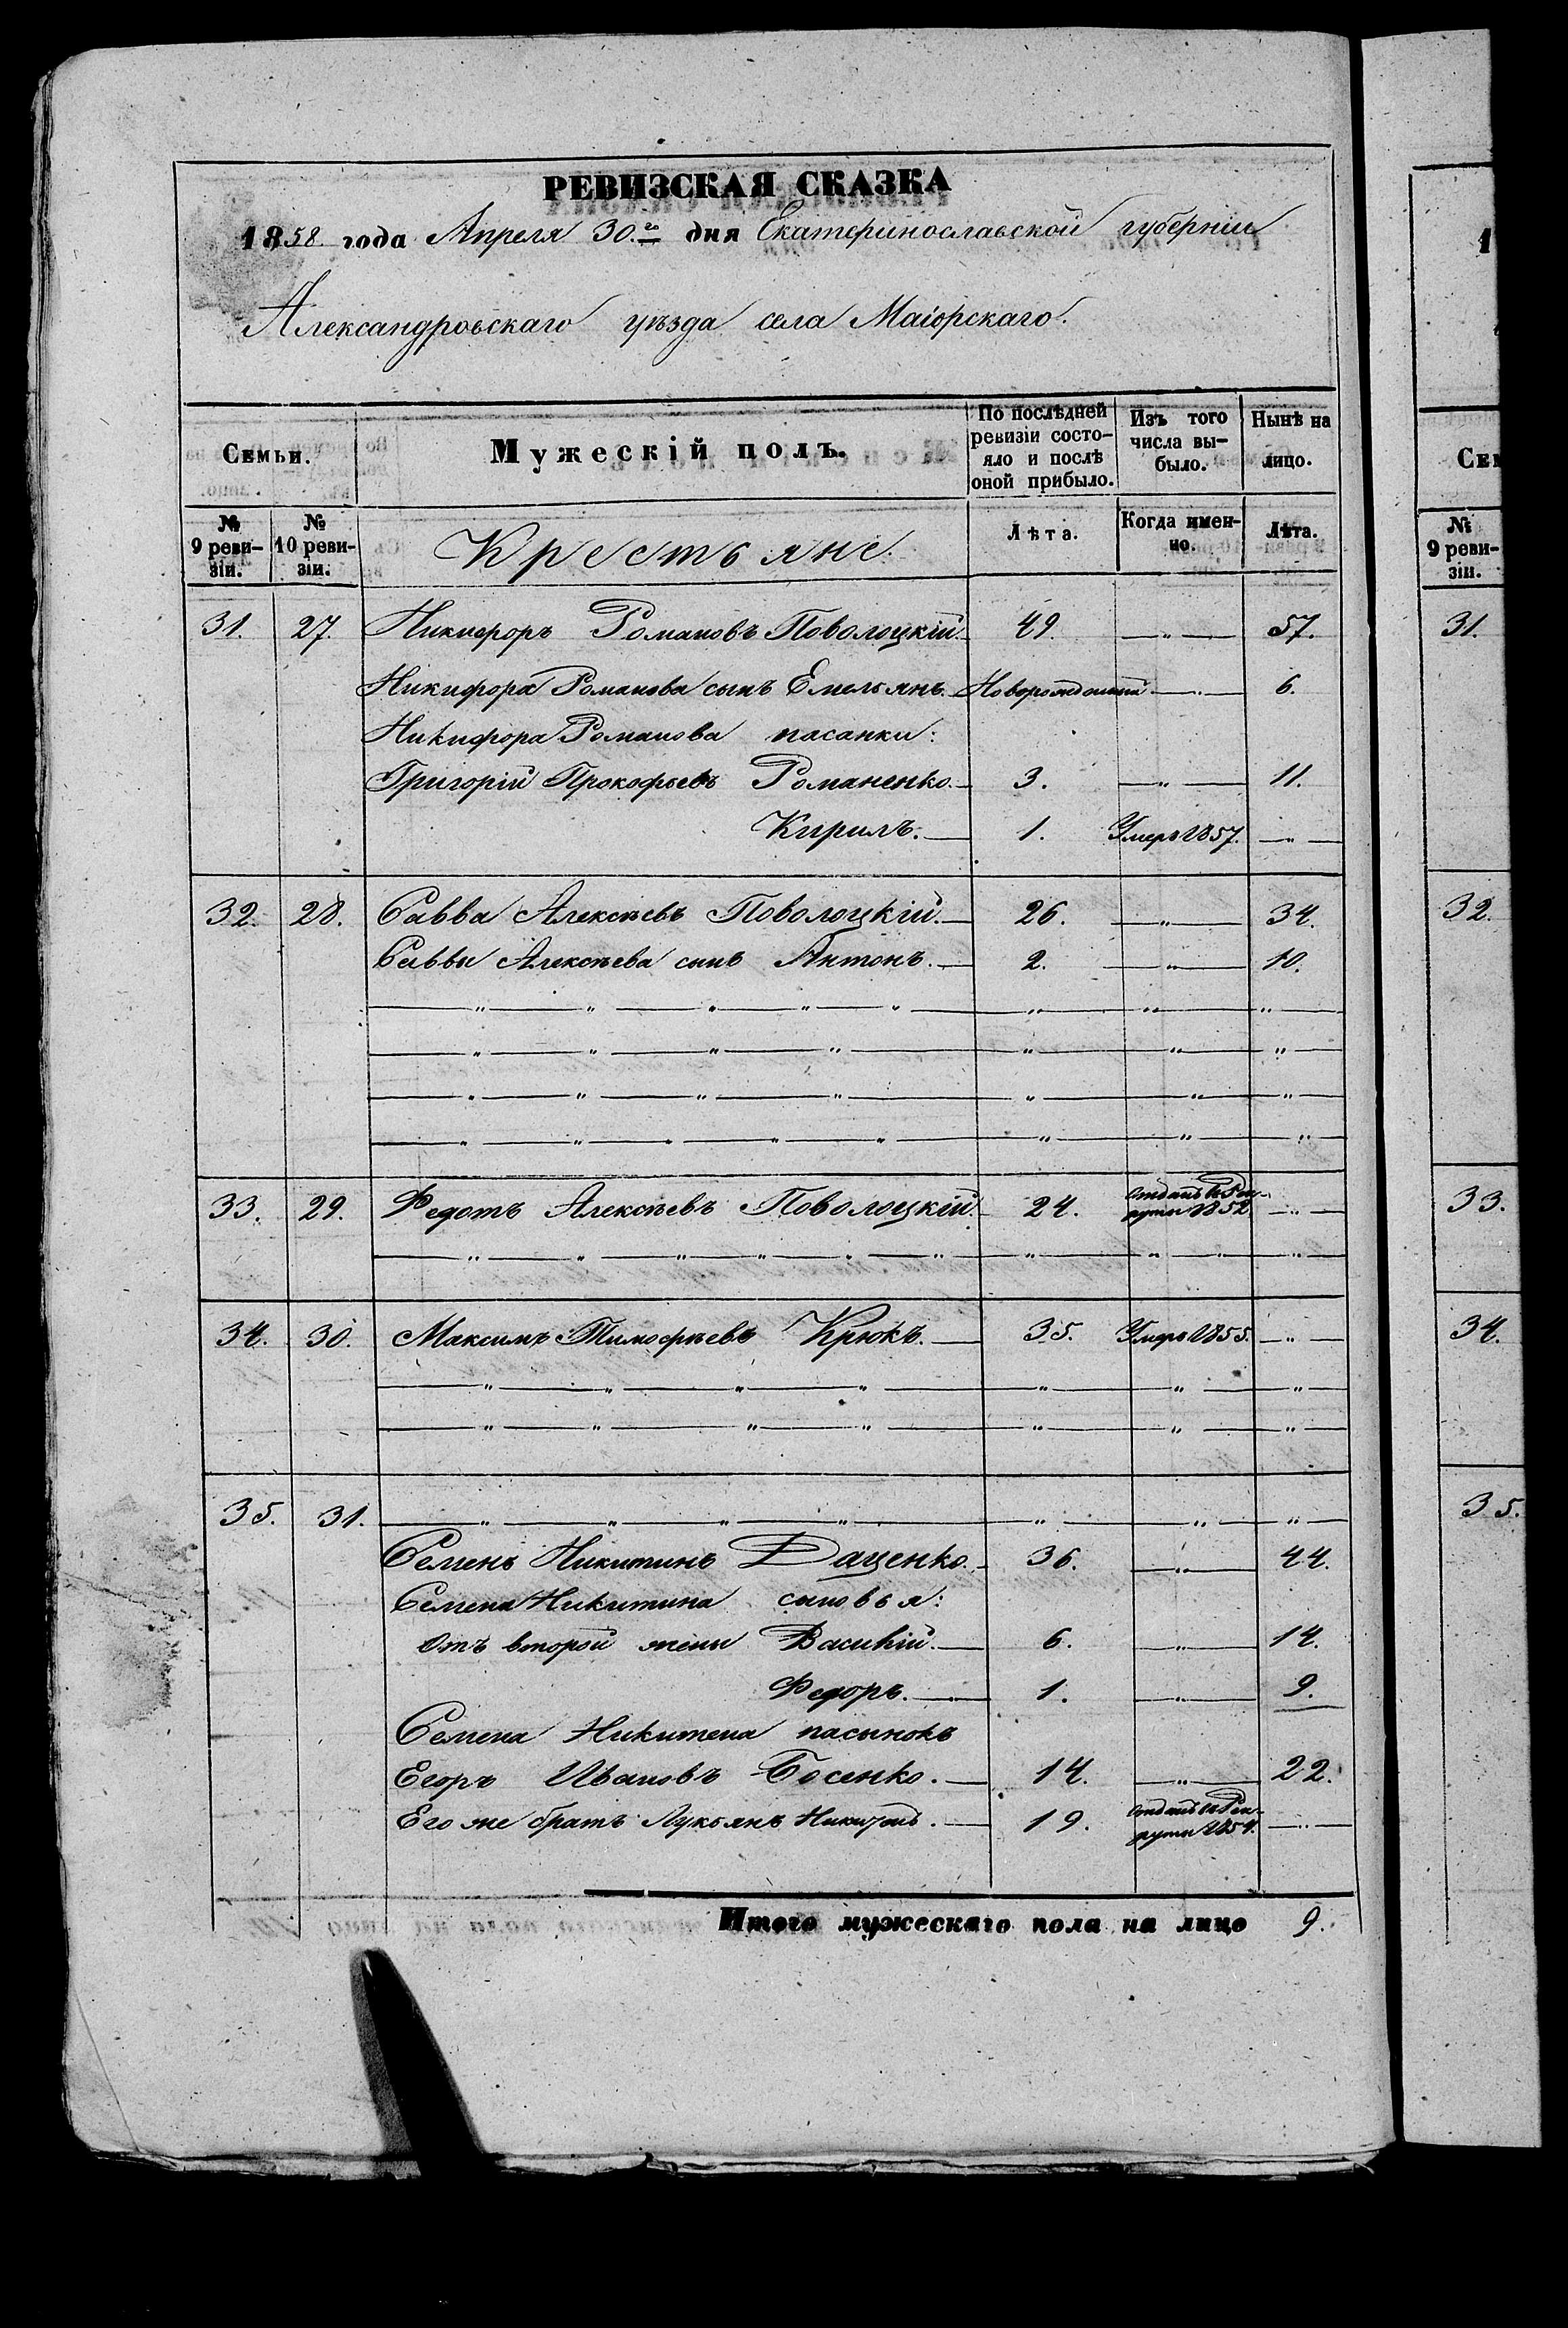 РЕВИЗСКАЯ СКАЗКА
1858 года Апреля 30.го дня Екатеринославской губерніи
Александровскаго уѣзда села Маіорскаго.
Семьи. Мужескій полъ. По послѣдней ревизіи состояло и послѣ оной прибыло. Изъ того числа выбыло. Нынѣ на лицо.
№ 9 ревизіи. № 10 ревизіи. Крестьяне. Лѣта. Когда именно. Лѣта.
31. 27. Никифоръ Романовъ Поволоцкій. 49. —„— 57.
Никифора Романова сынъ Емельянъ. Новорожденный —„— 6.
Никифора Романова пасанки:
Григорій Прокофьевъ Романенко. 3. —„— 11.
Кирилъ. 1. Умеръ 1857. —„—
32. 28. Савва Алексѣевъ Поволоцкій. 26. —„— 34.
Саввы Алексѣева сынъ Антонъ. 2. —„— 10.
33. 29. Федотъ Алексѣевъ Поволоцкій. 24. Отданъ въ Рекруты 1852. —„—
34. 30. Максимъ Тимофѣевъ Крюкъ. 35. Умеръ 1855. —„—
35. 31. —„—
Семенъ Никитинъ Даценко. 36. —„— 44.
Семена Никитина сыновья:
Отъ второй жены Василій. 6. —„— 14.
Федоръ. 1. —„— 9.
Семена Никитена пасынокъ
Егоръ Ивановъ Босенко. 14. —„— 22.
Его же братъ Лукьянъ Никитинъ. 19. Отданъ въ Рекруты 1854. —„—
Итого мужескаго пола на лицо 9.
1
Сем
№ 9 ревизіи.
31.
32.
33.
34.
35.